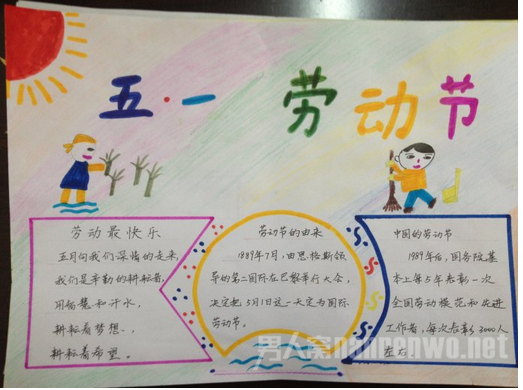 五·一 劳动节
劳动最快乐
五月向我们深情的走来,
我们是辛勤的耕耘者,
用智慧和汗水,
耕耘着梦想、
耕耘着希望。
劳动节的由来
1889年7月,由恩格斯领
导的第二国际在巴黎举行大会,
决定把5月1日这一天定为国际
劳动节。
中国的劳动节
1989年后,国务院基
本上每5年表彰一次
全国劳动模范和先进
工作者,每次表彰3000人
左右
男人窝nanrenwo.net